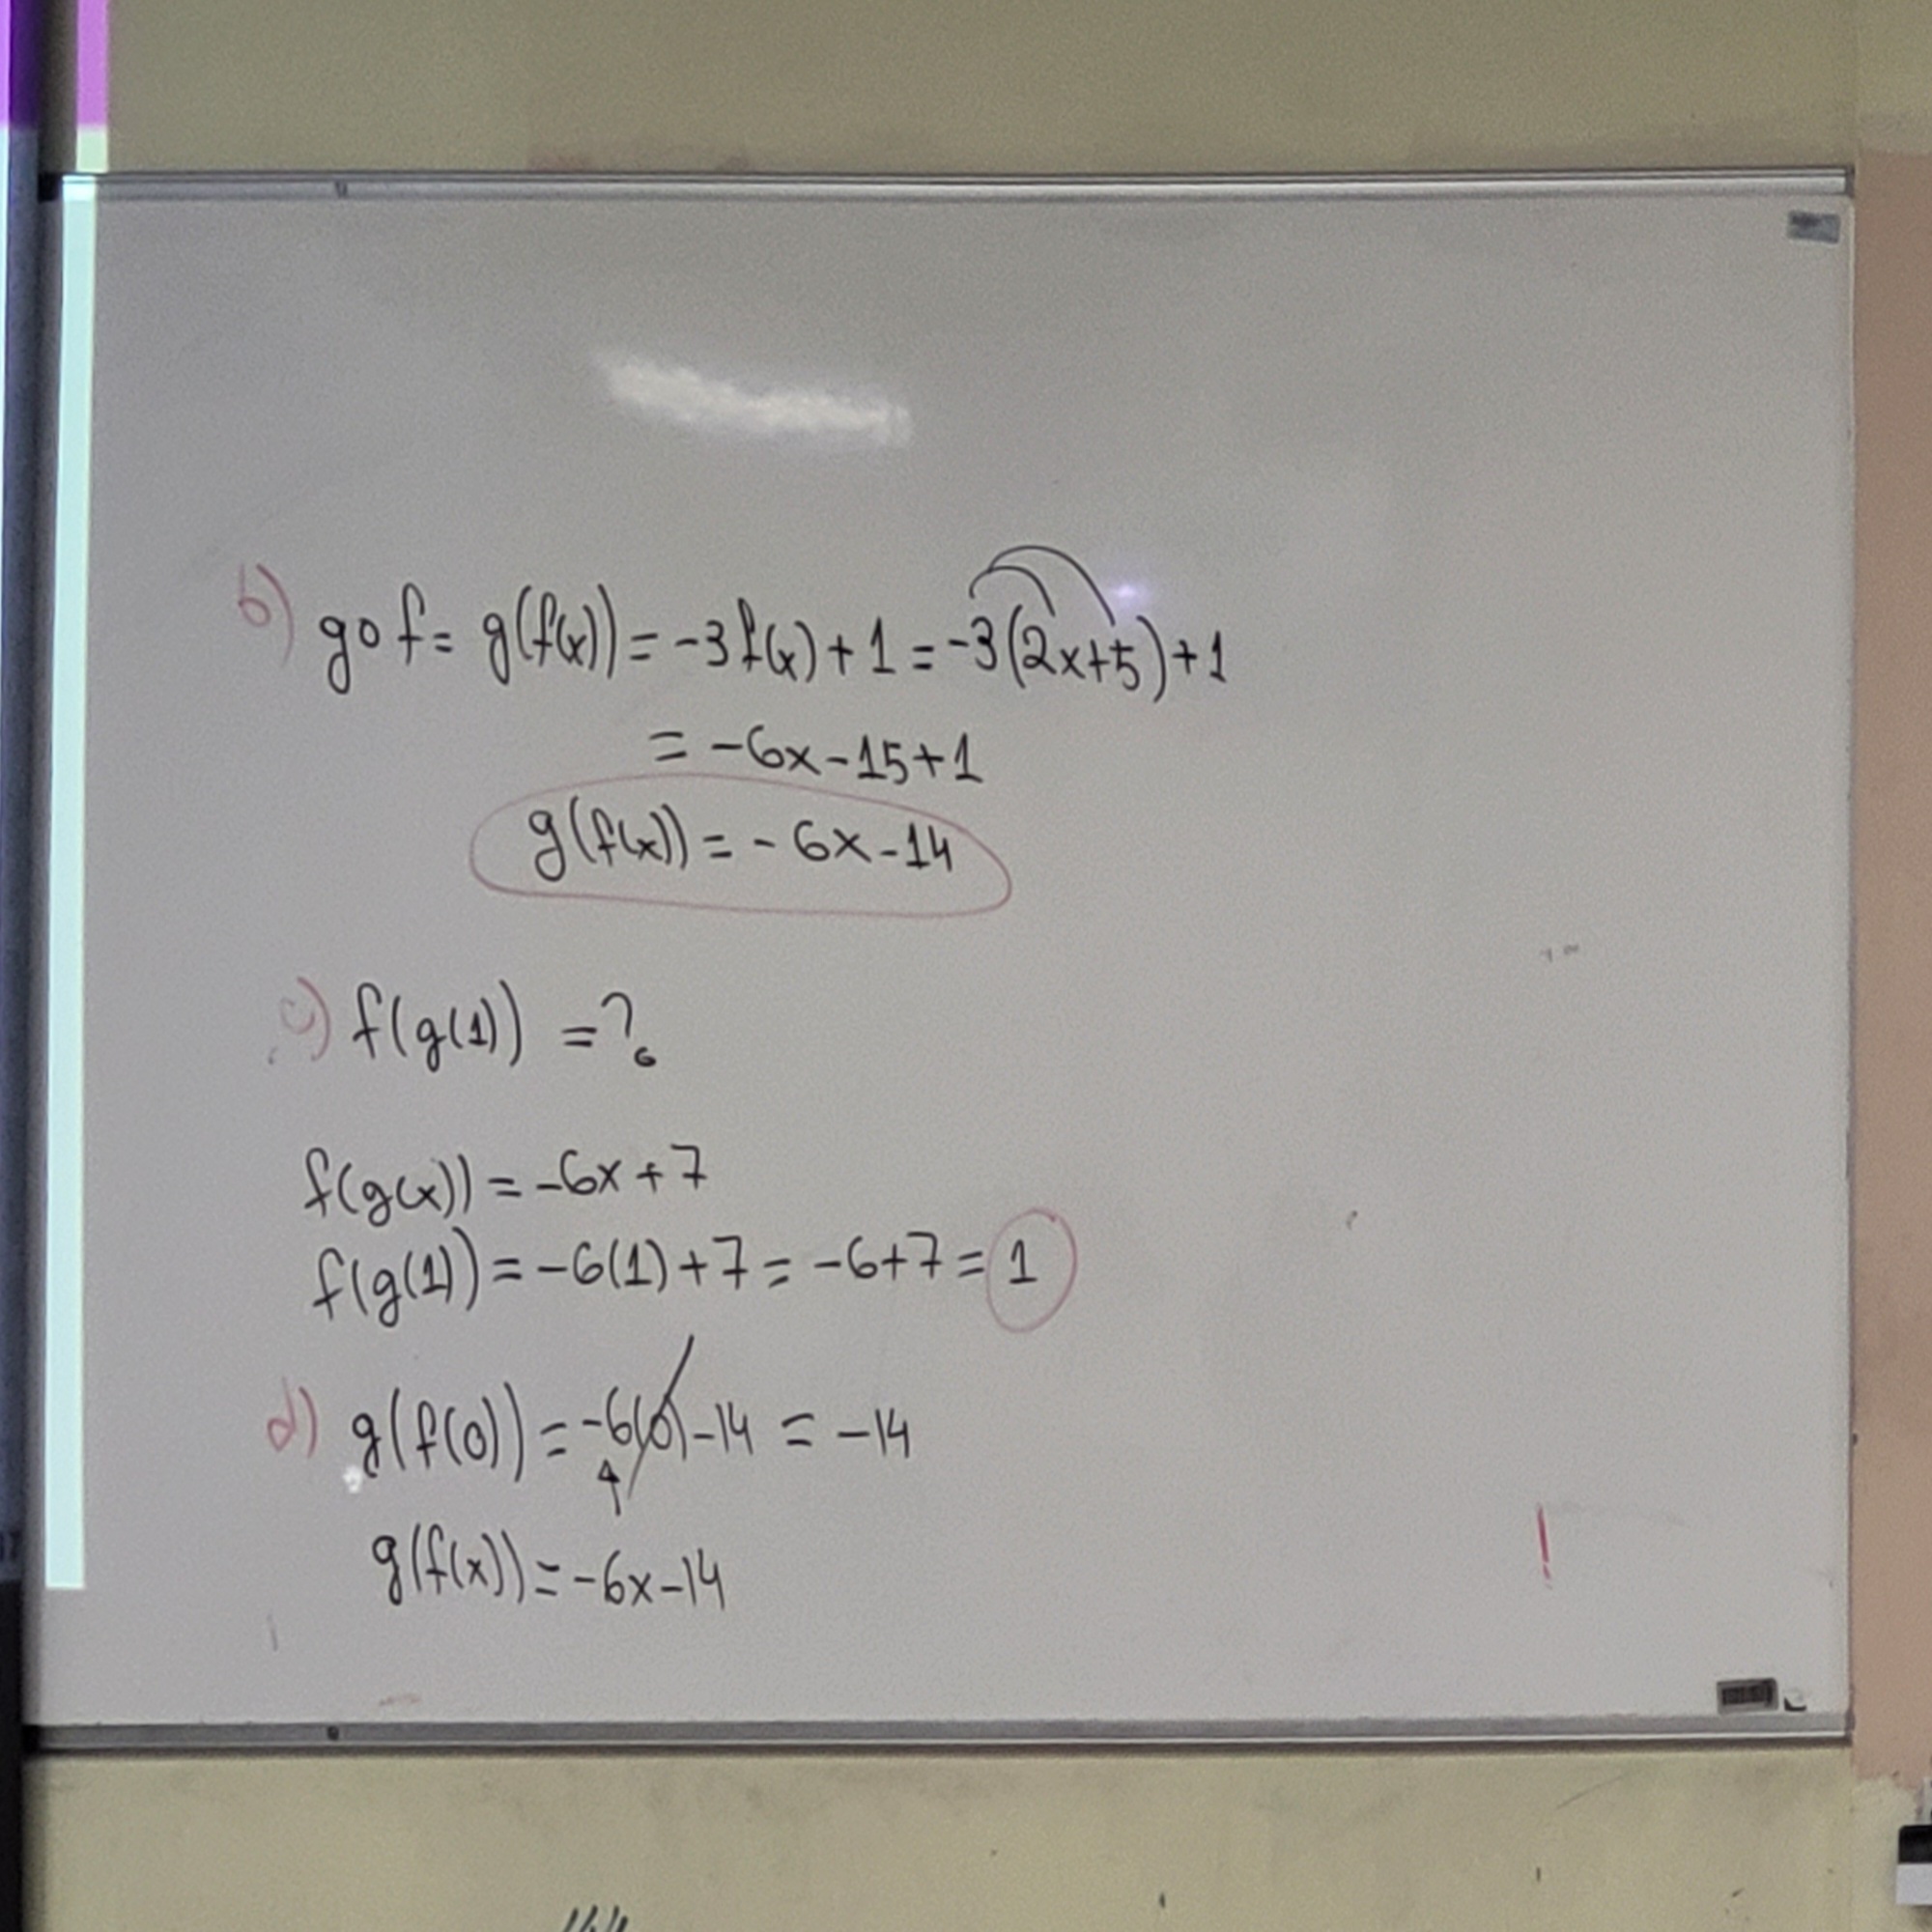 b) gof = g(f(x)) = -3f(x)+1 = -3(2x+5)+1
= -6x-15+1
g(f(x)) = -6x-14
c) f(g(1)) = ?
f(g(x)) = -6x+7
f(g(1)) = -6(1)+7 = -6+7 = 1
d) g(f(0)) = -6(0)-14 = -14
g(f(x)) = -6x-14
!